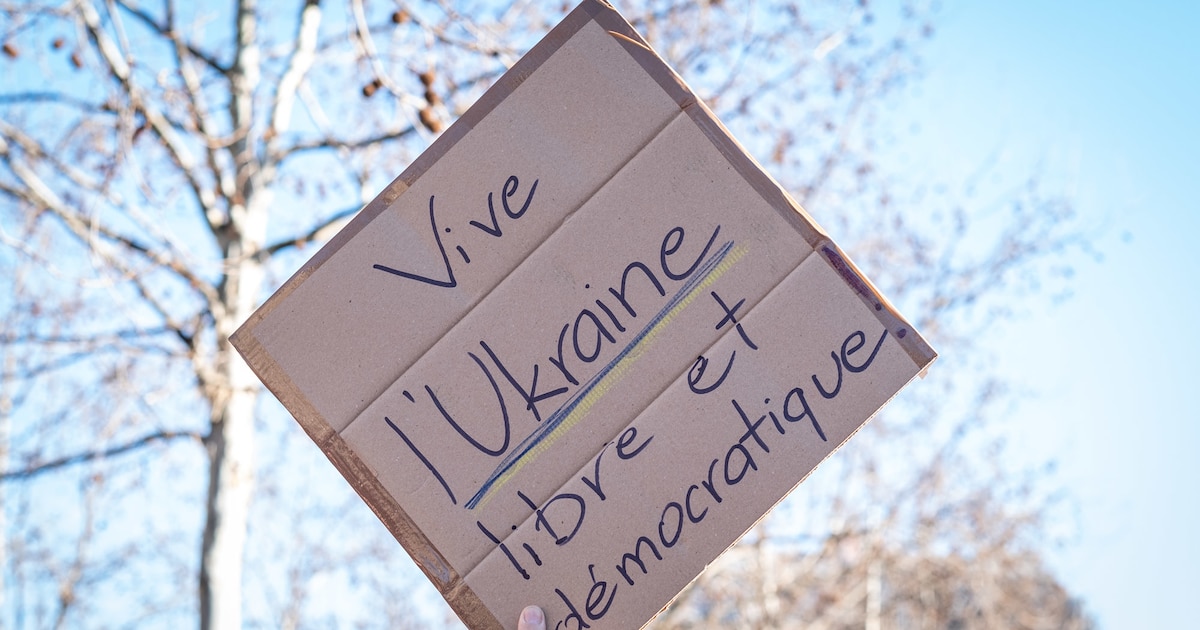 Vive
l'Ukraine
libre et
démocratique